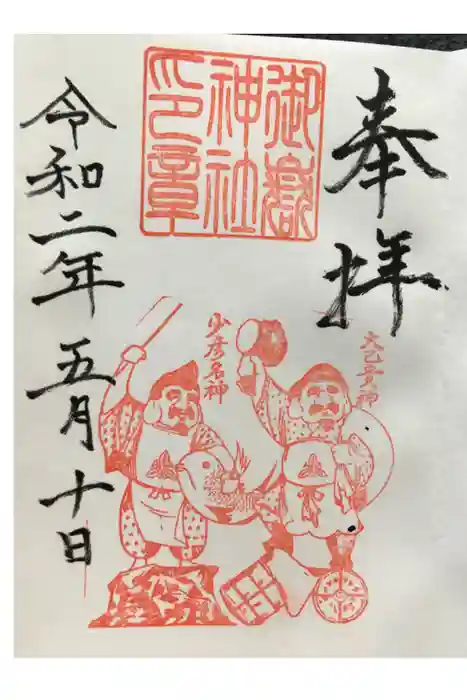 奉拝
御嶽
神社
印章
大己貴神
少彦名神
令和二年五月十日